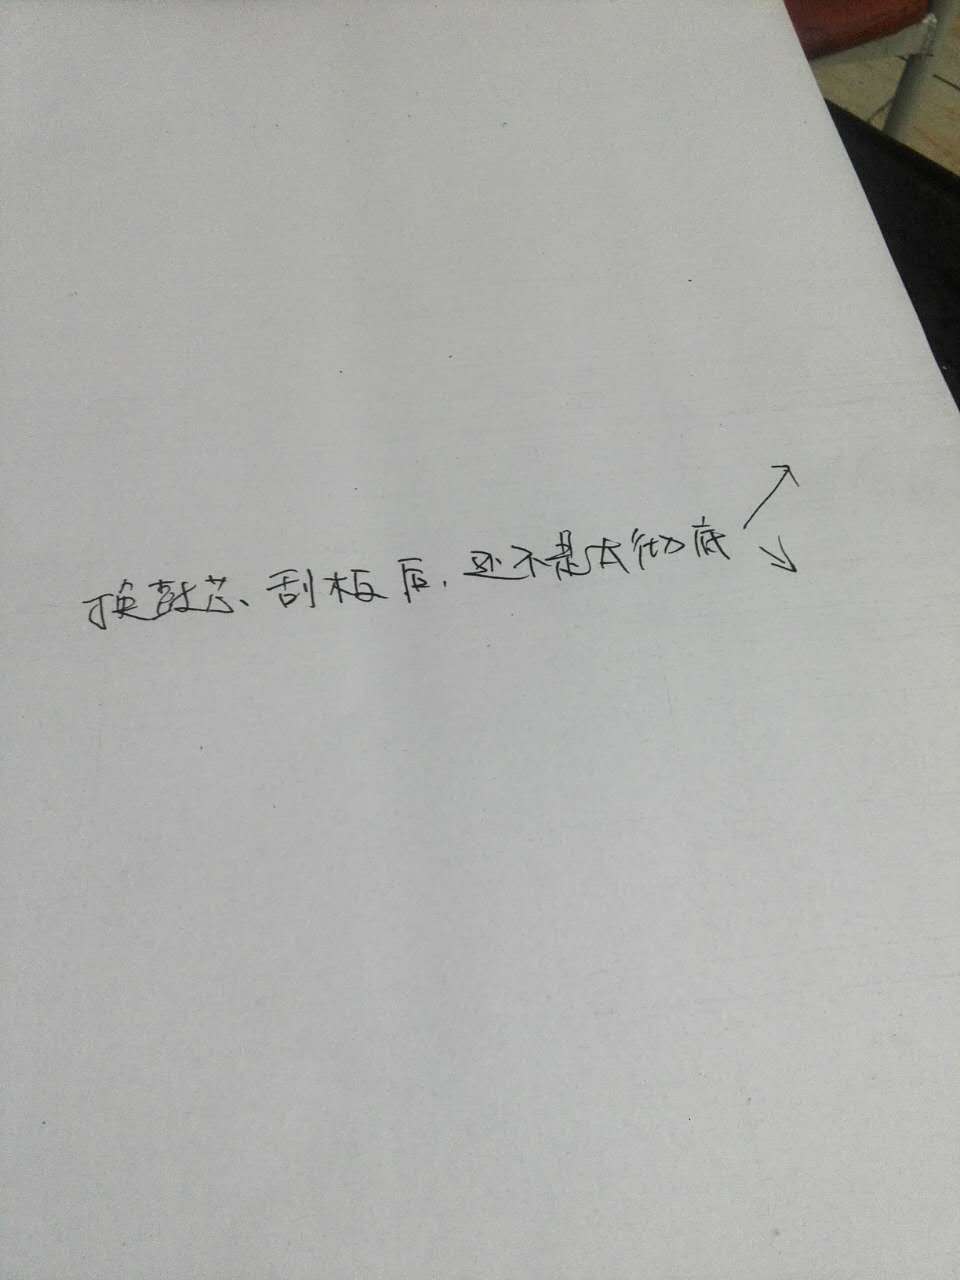 换鼓芯、刮板后，还不是太彻底